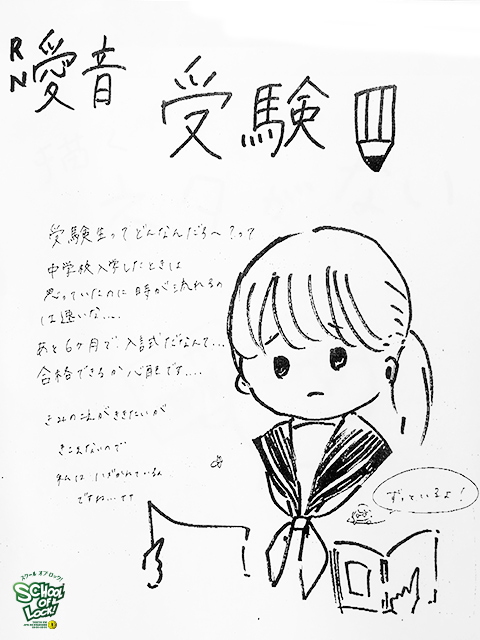 RN 愛音
受験
受験生ってどんなんだろ〜?って
中学校入学したときは
思っていたのに時が流れるの
は速いな....
あと6ヶ月で、入試だなんて...
合格できるか心配です....
きみの
ききたいが
きこえないので
私は
ですね...です
ずっといるよ!
スクールオブロック!
SCHOOL OF LOCK!